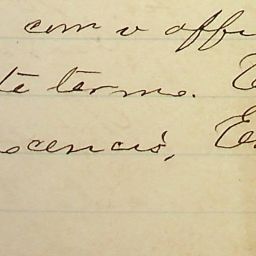 com o offi
te termo. E
ocencio, E